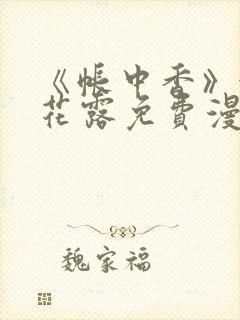 《帐中香》
花露免费漫
魏家福